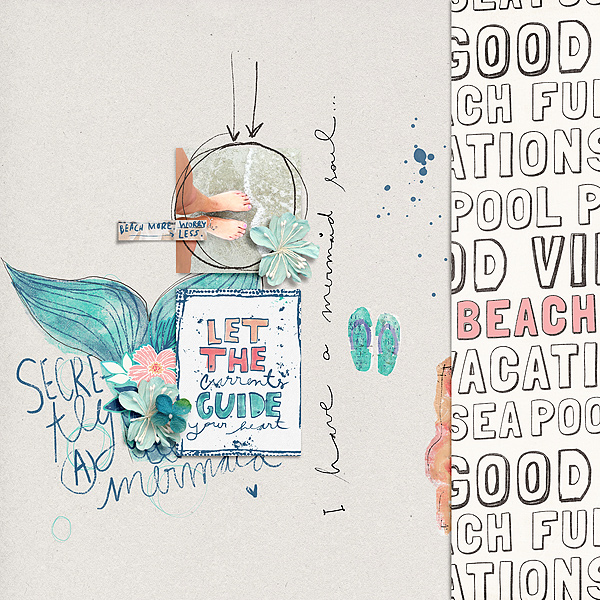 BEACH MORE WORRY
LESS.
I have a mermaid soul...
LET
THE
Currents
GUIDE
your heart
SECRE
tly
(A)
mermaid
GOOD
ACH FU
ATIONS
POOL P
OD VI
BEACH
VACATI
SEA POO
GOOD
ACH FU
ATIONS